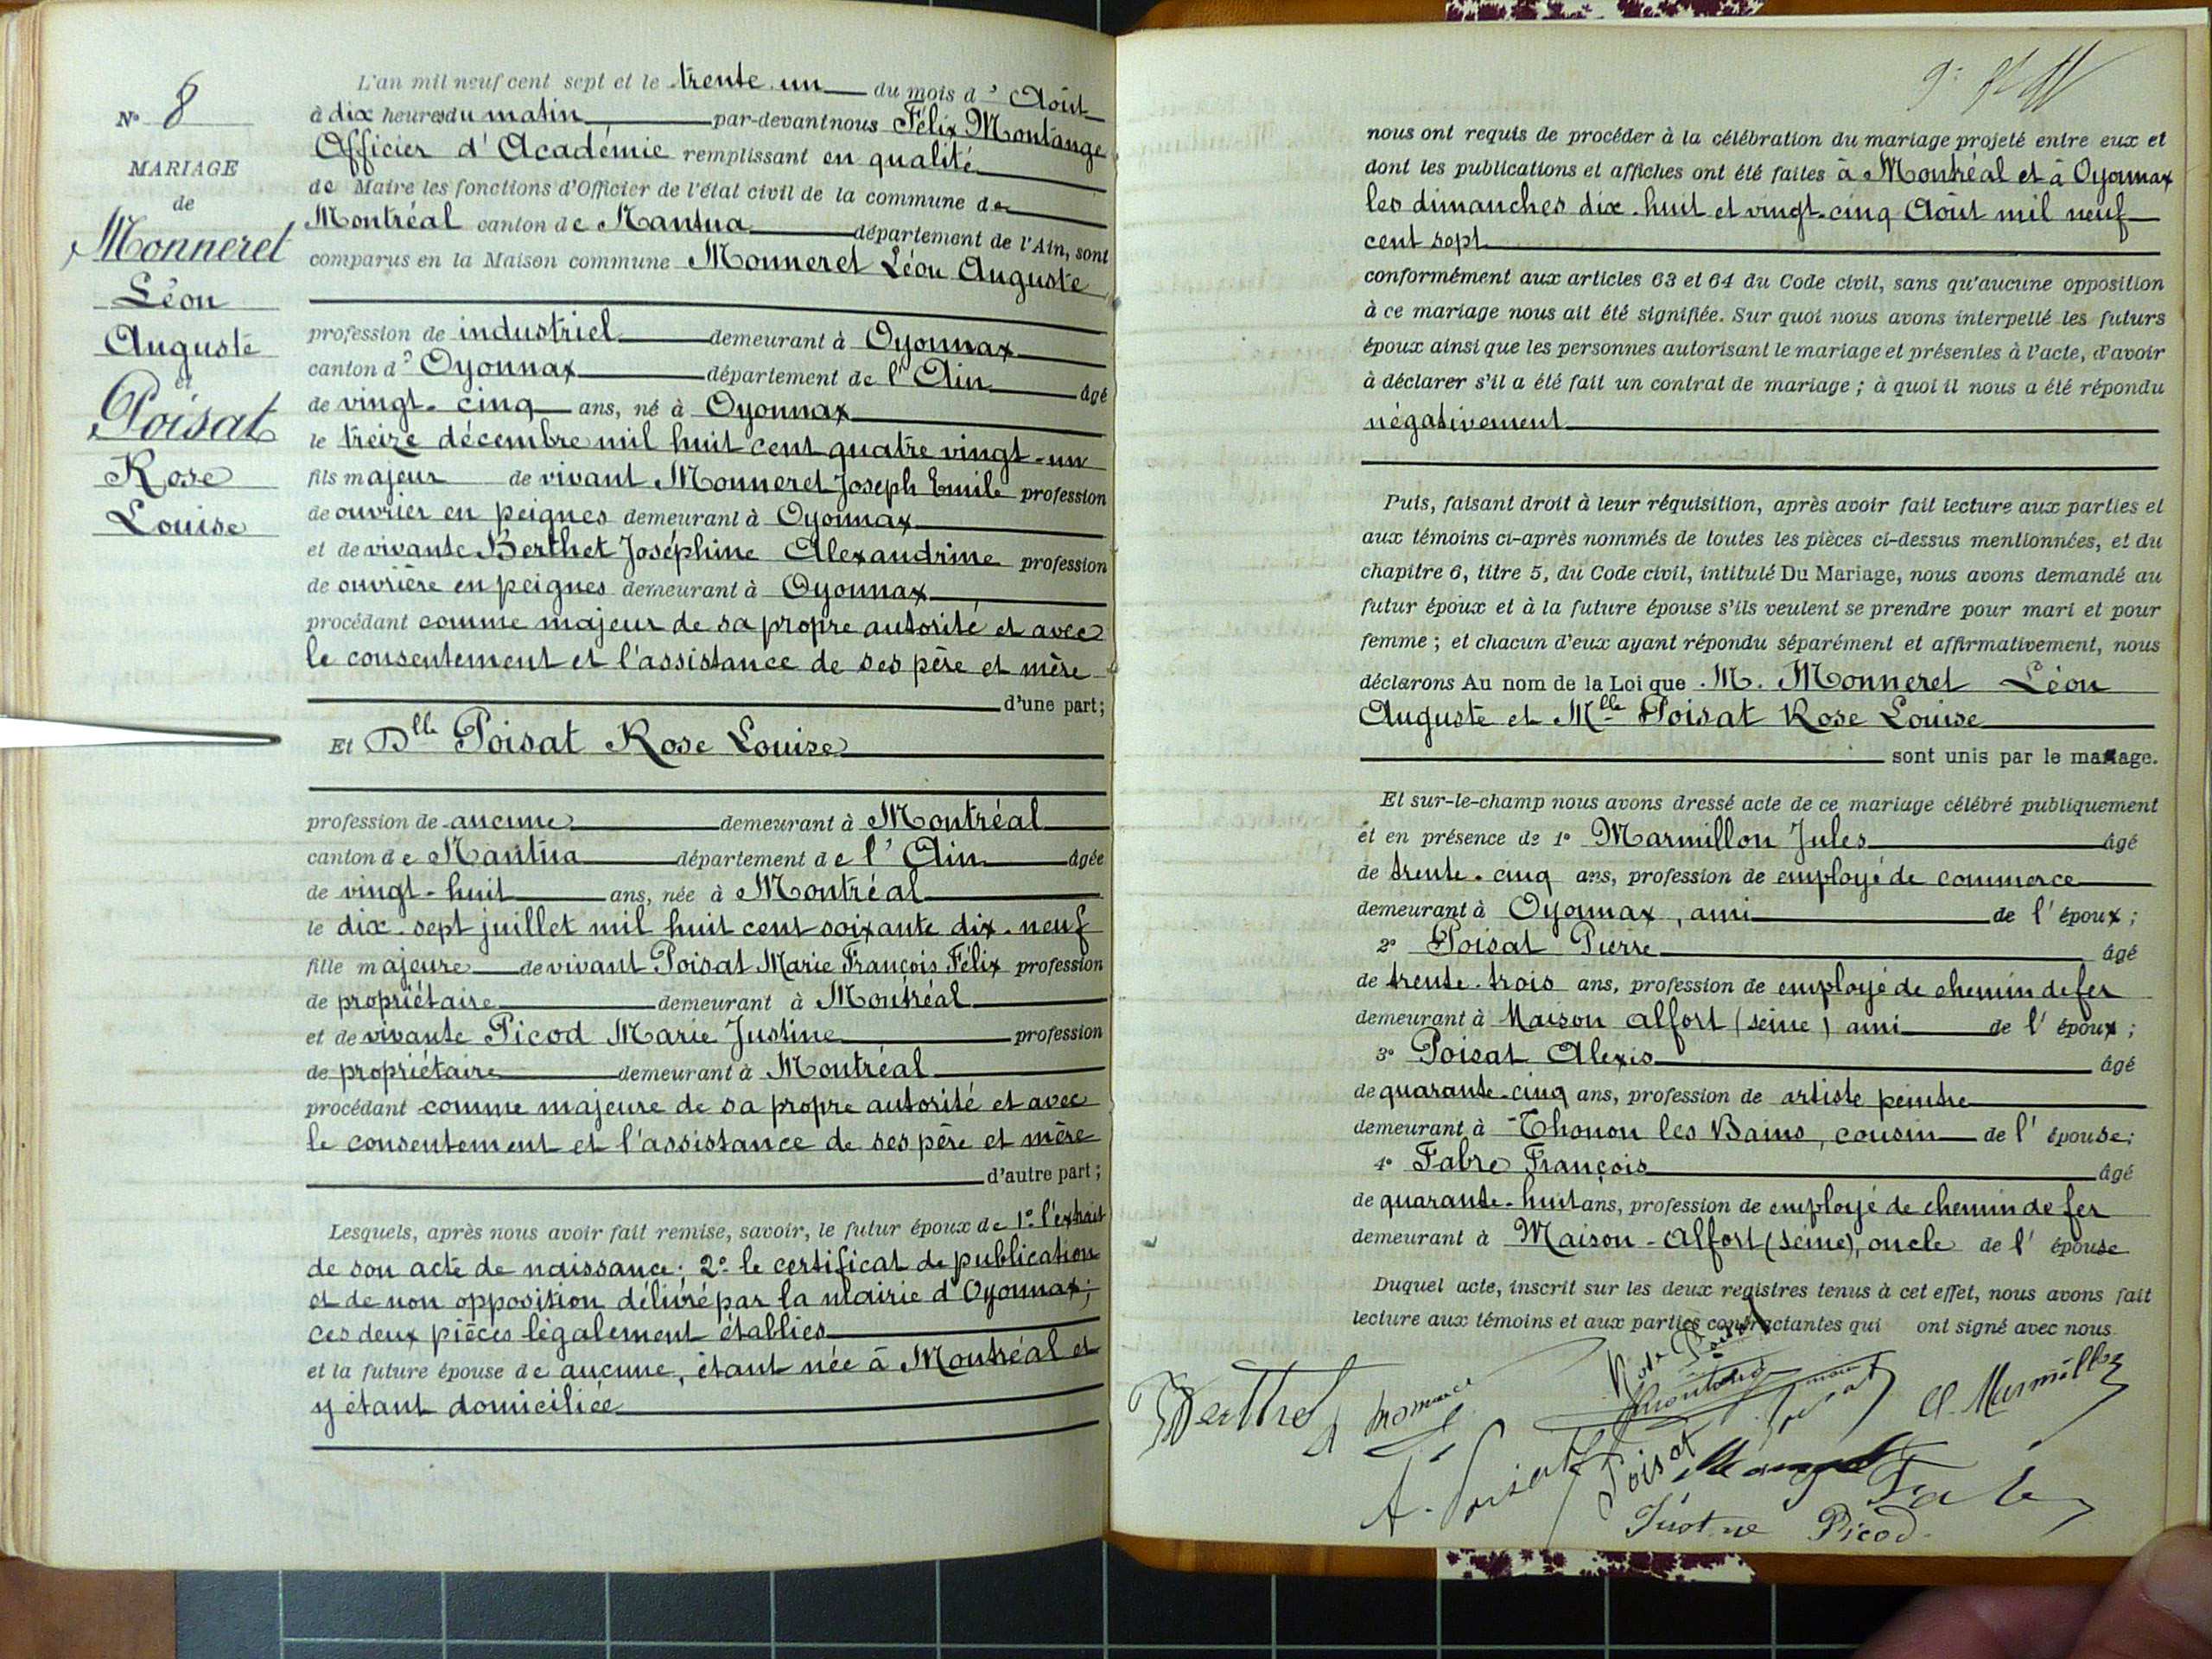 N° 8
MARIAGE
de
Monneret
Léon
Auguste
et
Poisat
Rose
Louise
L'an mil neuf cent sept et le trente un du mois d' Août
à dix heures du matin par-devant nous Félix Montange
Officier d'Académie remplissant en qualité
de Maire les fonctions d'Officier de l'état civil de la commune de
Montréal canton de Nantua département de l'Ain, sont
comparus en la Maison commune Monneret Léon Auguste
profession de industriel demeurant à Oyonnax
canton d' Oyonnax département de l'Ain âgé
de vingt-cinq ans, né à Oyonnax
le treize décembre mil huit cent quatre vingt-un
fils majeur de vivant Monneret Joseph Emile profession
de ouvrier en peignes demeurant à Oyonnax
et de vivante Berthet Joséphine Alexandrine profession
de ouvrière en peignes demeurant à Oyonnax
procédant comme majeur de sa propre autorité et avec
le consentement et l'assistance de ses père et mère
d'une part;
Et Dlle Poisat Rose Louise
profession de aucune demeurant à Montréal
canton de Nantua département de l'Ain âgée
de vingt-huit ans, née à Montréal
le dix-sept juillet mil huit cent soixante dix-neuf
fille majeure de vivant Poisat Marie François Félix profession
de propriétaire demeurant à Montréal
et de vivante Picod Marie Justine profession
de propriétaire demeurant à Montréal
procédant comme majeure de sa propre autorité et avec
le consentement et l'assistance de ses père et mère
d'autre part;
Lesquels, après nous avoir fait remise, savoir, le futur époux de 1° l'extrait
de son acte de naissance; 2° le certificat de publication
et de non opposition délivré par la mairie d'Oyonnax;
ces deux pièces légalement établies
et la future épouse de aucune, étant née à Montréal et
y étant domiciliée
nous ont requis de procéder à la célébration du mariage projeté entre eux et
dont les publications et affiches ont été faites à Montréal et à Oyonnax
les dimanches dix-huit et vingt-cinq Août mil neuf
cent sept
conformément aux articles 63 et 64 du Code civil, sans qu'aucune opposition
à ce mariage nous ait été signifiée. Sur quoi nous avons interpellé les futurs
époux ainsi que les personnes autorisant le mariage et présentes à l'acte, d'avoir
à déclarer s'il a été fait un contrat de mariage; à quoi il nous a été répondu
négativement
Puis, faisant droit à leur réquisition, après avoir fait lecture aux parties et
aux témoins ci-après nommés de toutes les pièces ci-dessus mentionnées, et du
chapitre 6, titre 5, du Code civil, intitulé Du Mariage, nous avons demandé au
futur époux et à la future épouse s'ils veulent se prendre pour mari et pour
femme; et chacun d'eux ayant répondu séparément et affirmativement, nous
déclarons Au nom de la Loi que M. Monneret Léon
Auguste et Mlle Poisat Rose Louise
sont unis par le mariage.
Et sur-le-champ nous avons dressé acte de ce mariage célébré publiquement
et en présence de 1° Marmillon Jules âgé
de trente-cinq ans, profession de employé de commerce
demeurant à Oyonnax, ami de l'époux;
2° Poisat Pierre âgé
de trente-trois ans, profession de employé de chemin de fer
demeurant à Maison Alfort (seine) ami de l'époux;
3° Poisat Alexis âgé
de quarante-cinq ans, profession de artiste peintre
demeurant à Thonon les Bains, cousin de l'épouse;
4° Fabre François âgé
de quarante-huit ans, profession de employé de chemin de fer
demeurant à Maison-Alfort (seine), oncle de l'épouse
Duquel acte, inscrit sur les deux registres tenus à cet effet, nous avons fait
lecture aux témoins et aux parties contractantes qui ont signé avec nous
Rose Poisat
Berthet
A. Poisat
Poisat
Justine Picod